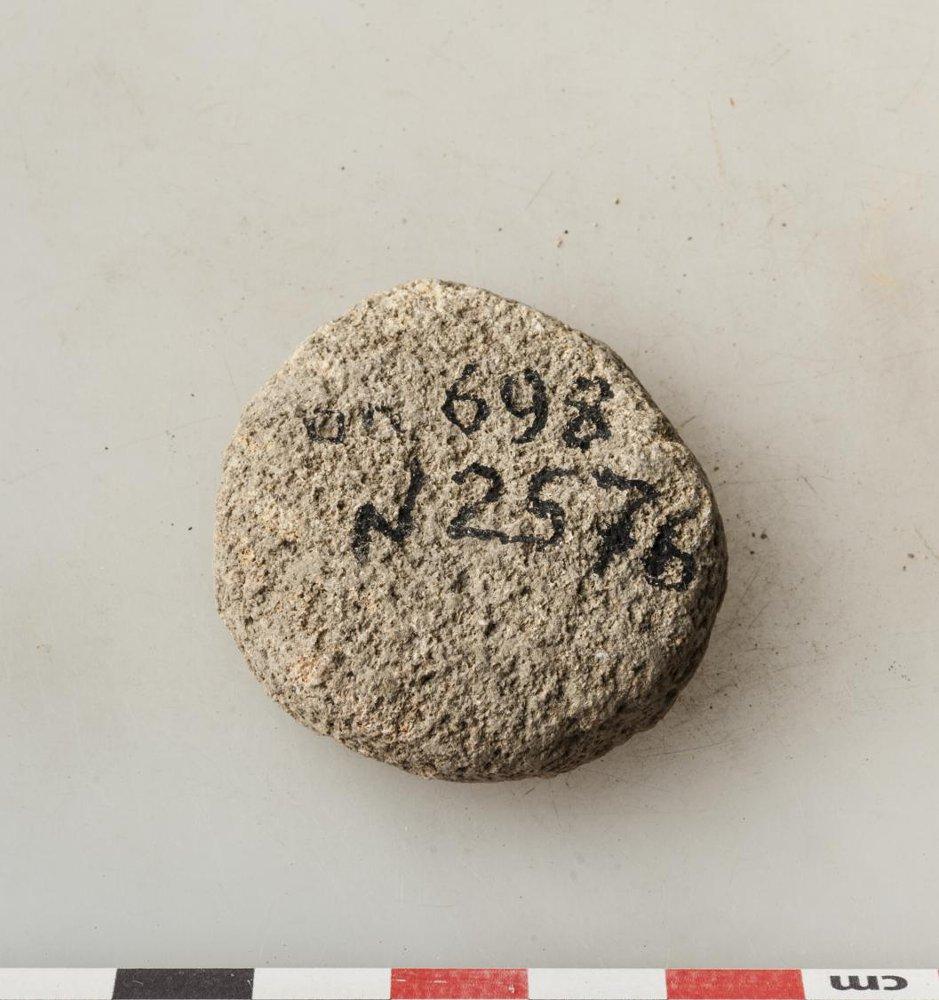 on 698
N 2576
cm